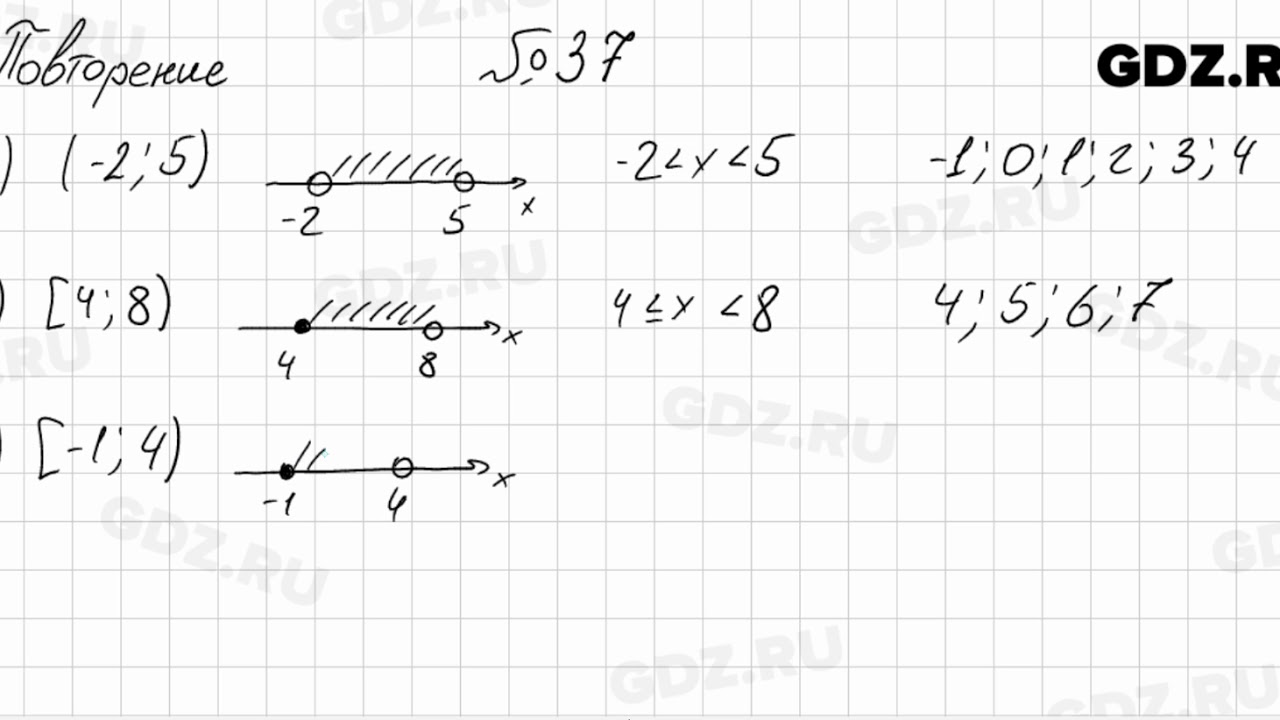 Повторение №37 GDZ.R
) (-2; 5) -2 5 x -2 < x < 5 -1; 0; 1; 2; 3; 4
) [4; 8) 4 8 x 4 ≤ x < 8 4; 5; 6; 7
) [-1; 4) -1 4 x
GDZ.RU
GDZ.RU
GDZ.RU
GDZ.RU
GDZ.RU
GDZ.RU
GDZ.RU
GDZ.RU